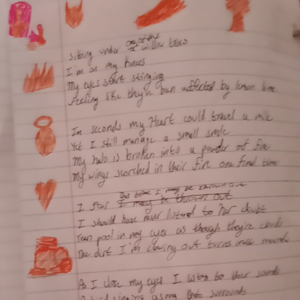 Sitting under one of the willow trees
I'm on my knees
My eyes start stinging
Feeling like they've been affected by lemon lime
In seconds my Heart could travel a mile
Yet I still manage a small smile
My halo is broken into a powder of fire
My wings scorched in their fire one final time
I may be thrown out
I should have never listened to her doubt
Tears pool in my eyes as though they're clouds
The dirt I'm clawing out turns into mounds
As I close my eyes I listen to their sounds